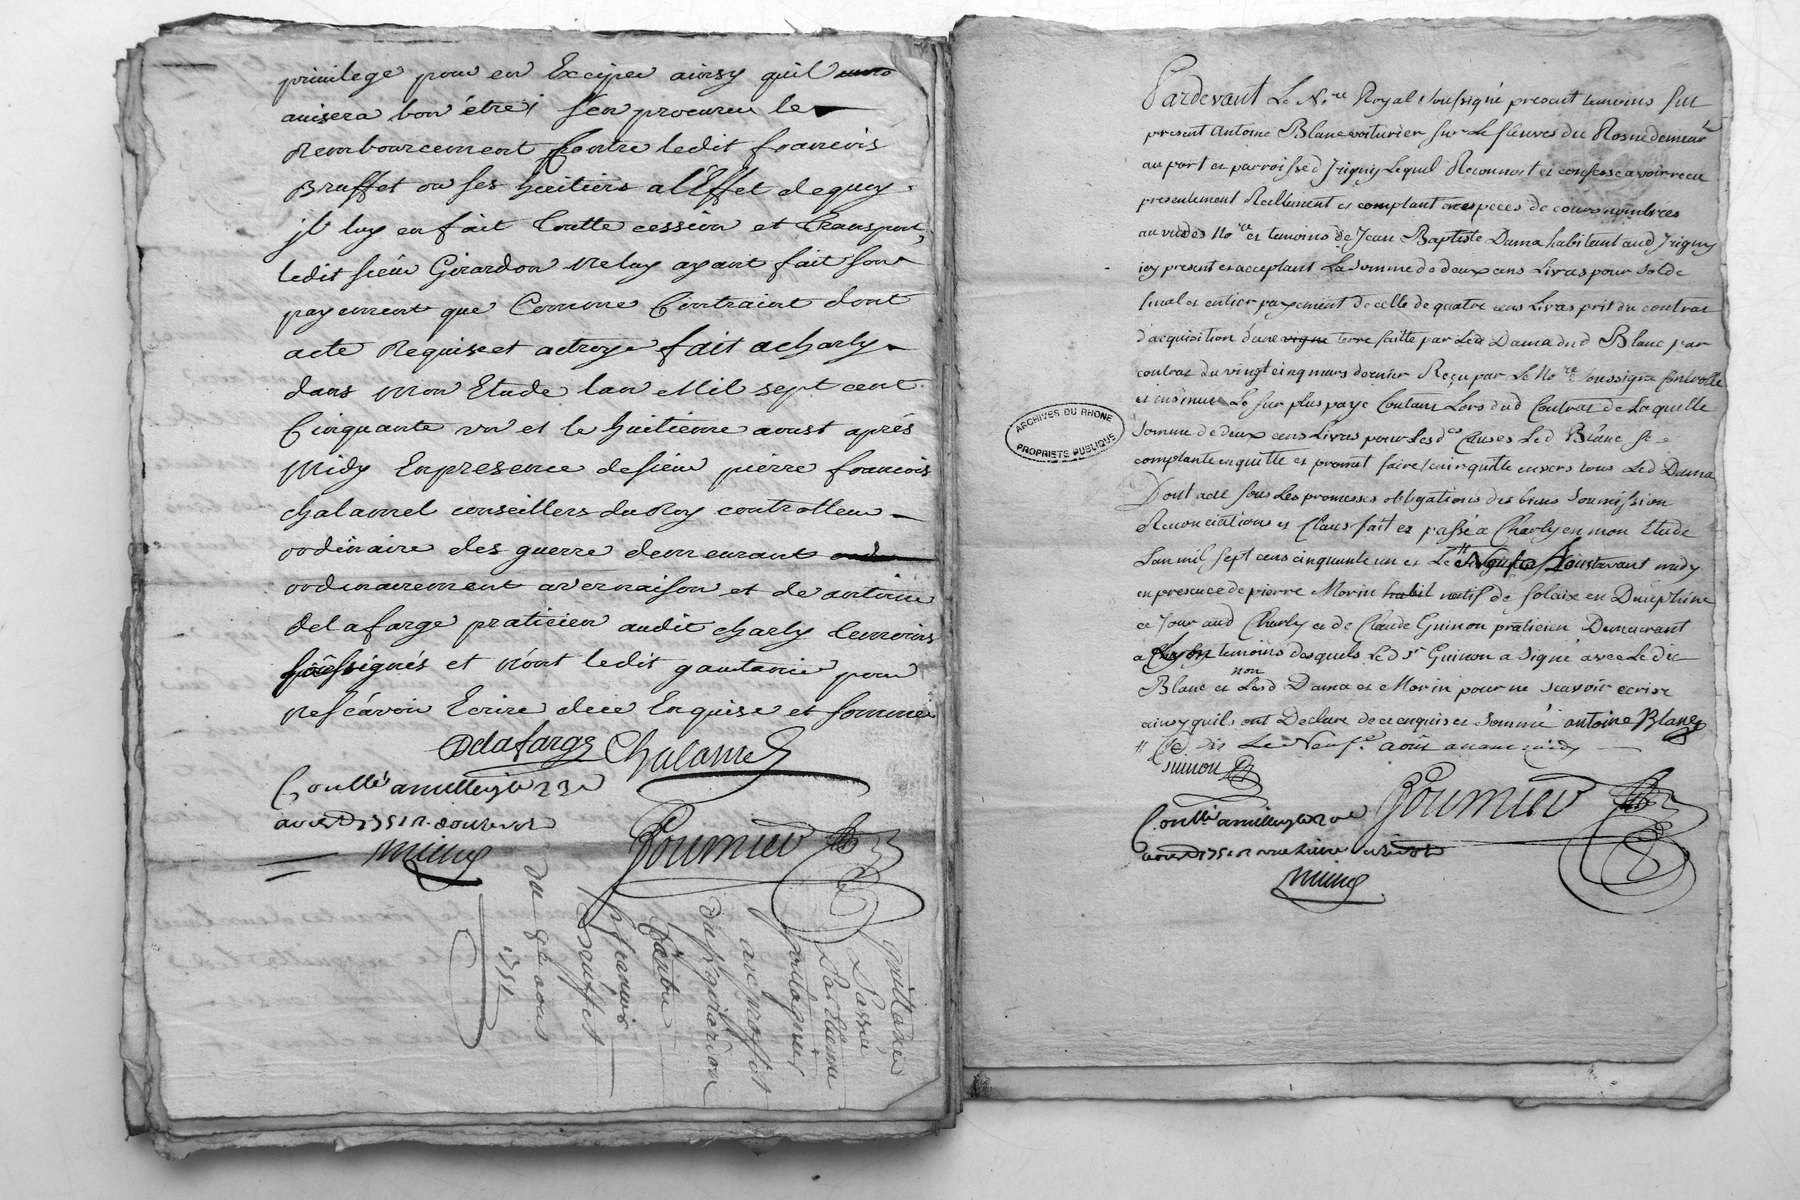 privilege pour en Exciper ainsy quil
avisera bon être, s'en procurer le
Rembourcement Contre ledit francois
Bruffet ou ses heritiers a l'Effet dequoy
jl luy en fait toutte cession et transport,
ledit sieur Girardon ne luy ayant fait son
payement que Comme Contraint dont
acte Requis et octroyé fait a charly
dans mon Etude lan Mil sept cent
Cinquante un et le huitieme aoust aprés
Midy En presence de sieur pierre francois
chalamel conseillers du Roy controlleur
ordinaire des guerre demeurant
ordinairement a vernaison et de antoine
delafarge praticien audit charly temoins
soussignés et non ledit gautanier pour
ne scavoir Ecrire de ce Enquis et sommé
Delafarge Chalamel
Conllé a millery le 23e
aoust 1751 R. douze sols
Fournier
quittance
Passée
Par etienne
a u profit
du sr girardon
Contre
francois
Bruffet
du 8e aoust
1751
Pardevant Le Nre Royal soussigné presait temoins fut
present Antoine Blanc voiturier sur Le fleuves du Rosne demeurt
au port et parroisse d'Irigny Lequel Reconnoit et confesse avoir receu
presentement Reellement et comptant en especes de cours nombrées
au vu des Nore et temoins de Jean Baptiste Dama habitant aud Irigny
icy present et acceptant La somme de deux cens Livres pour solde
final et entier payement de celle de quatre cens Livres prit du contrat
d'acquisition d'une vigne terre faitte par Led Dama dud Blanc par
contrat du vingt cinq mars dernier Reçu par Le Nore soussigné controllé
et insinué Le sur plus payé Contant Lors dud Contrat de Laquelle
somme de deux cens Livres pour Lesd Causes Led Blanc se
comptante en quitte et promet faire tenir quitte envers tous Led Dama
Dont acte sous Les promesses obligations des biens soumission
Renonciations et Claus fait et passé a Charly en mon Etude
L'an mil sept cens cinquante un et Le Aoust avant midy
en presence de pierre Morin habit natif de solaix en Dauphiné
ce Jour aud Charly et de Claude Guinon praticien Demeurant
a Charly temoins desquels Led sr Guinon a signé avec Ledit
Blanc et non Lesd Dama et Morin pour ne scavoir ecrire
ainsy quils ont Declaré de ce enquis et sommé antoine Blanc
Le Neufe août avant midy
Guinon
Conllé a millery le
aoust 1751 R
Fournier
ARCHIVES DU RHONE
PROPRIETE PUBLIQUE